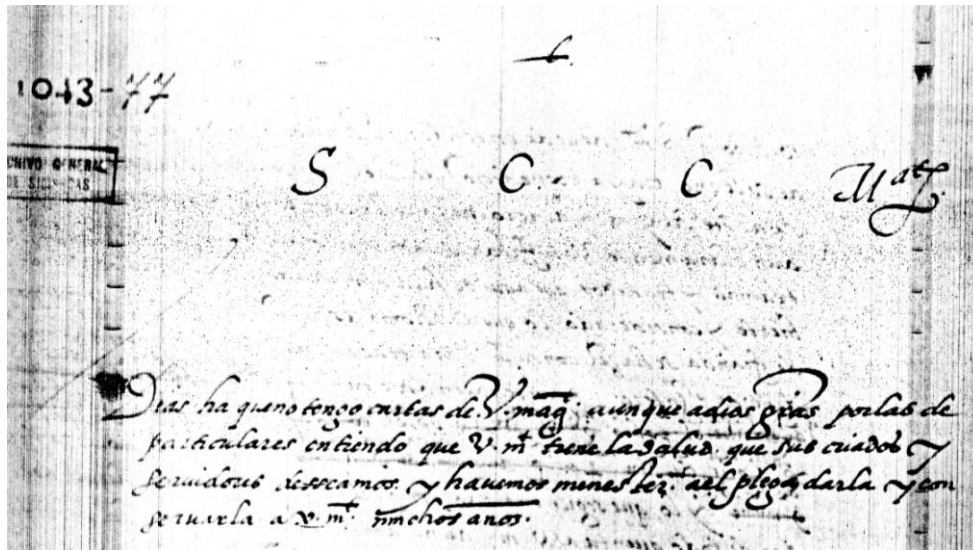 1043-77
ARCHIVO GENERAL
DE SIMANCAS
S C C M^at
Dias ha que no tengo cartas de V. mag^t aunque a dios gr̃as por las de
particulares entiendo que V. m^t tiene la salud que sus criados y
servidores desseamos y havemos menester. a el plega darla y con
servarla a v. m^t muchos años.